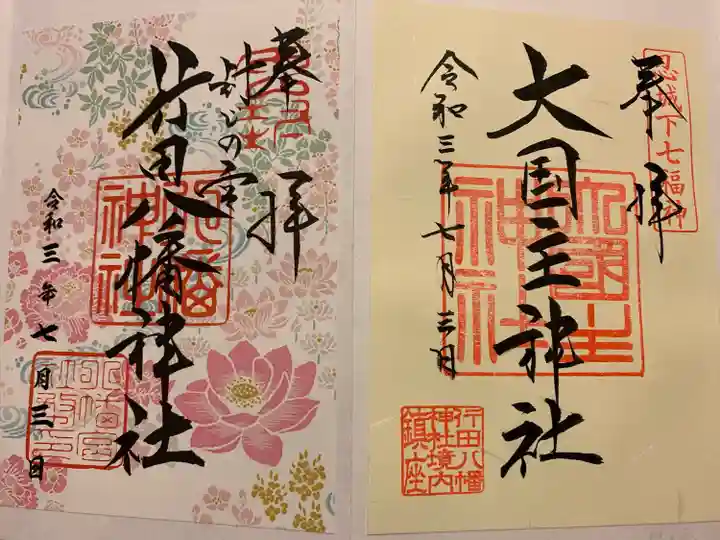 奉拝
封じの宮
行田八幡神社
令和三年七月三日
八幡神社
忍城下七福神
奉拝
大国主神社
大國主神社
令和三年七月三日
行田八幡
神社境内
鎮座